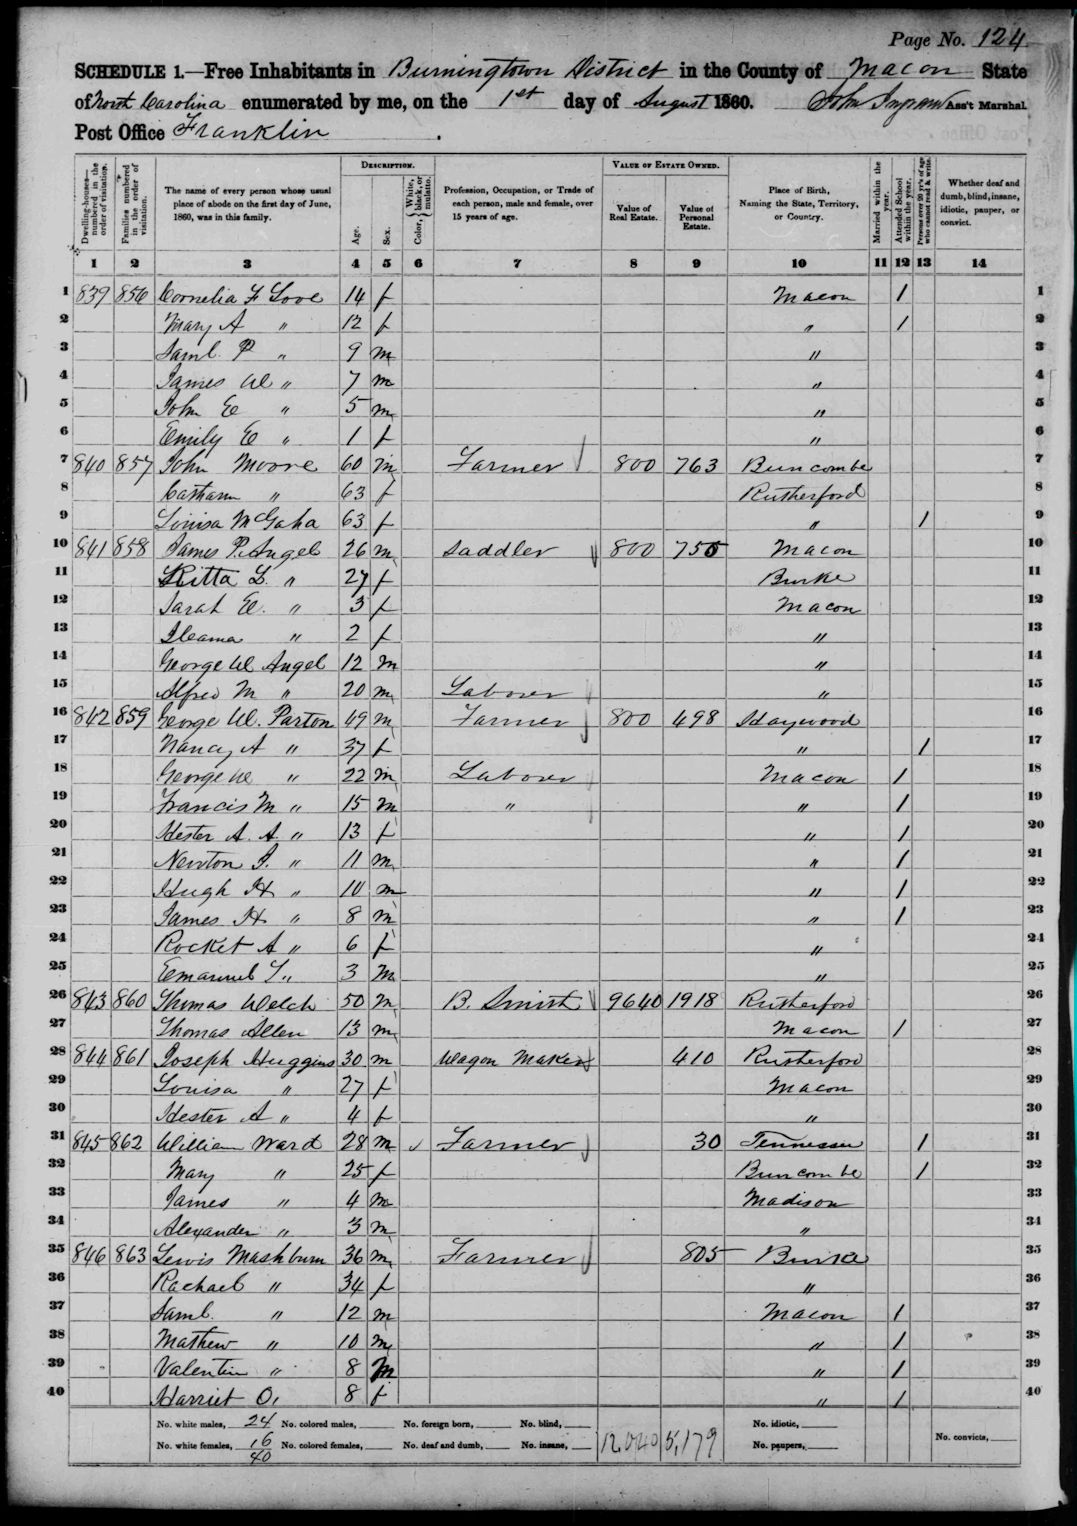 Page No. 124
SCHEDULE 1.—Free Inhabitants in Burningtown District in the County of Macon State
of North Carolina enumerated by me, on the 1st day of August 1860. John Ingram Ass't Marshal.
Post Office Franklin.
DESCRIPTION. VALUE OF ESTATE OWNED.
Dwelling-houses—numbered in the order of visitation. Families numbered in the order of visitation. The name of every person whose usual place of abode on the first day of June, 1860, was in this family. Age. Sex. Color, {White, black, or mulatto. Profession, Occupation, or Trade of each person, male and female, over 15 years of age. Value of Real Estate. Value of Personal Estate. Place of Birth, Naming the State, Territory, or Country. Married within the year. Attended School within the year. Persons over 20 yr's of age who cannot read & write. Whether deaf and dumb, blind, insane, idiotic, pauper, or convict.
1 2 3 4 5 6 7 8 9 10 11 12 13 14
1 839 856 Cornelia F Love 14 f Macon 1 1
2 Mary A " 12 f " 1 2
3 Saml. P " 9 m " 3
4 James W " 7 m " 4
5 John E " 5 m " 5
6 Emily E " 1 f " 6
7 840 857 John Moore 60 m Farmer 800 763 Buncombe 7
8 " 63 f Rutherford 8
9 Louisa McGaha 63 f " 1 9
10 841 858 James P. Angel 26 m Saddler 800 755 Macon 10
11 Ritta L. " 27 f Burke 11
12 Sarah E. " 3 f Macon 12
13 " 2 f " 13
14 George W Angel 12 m " 14
15 Alfred M " 20 m Laborer " 15
16 842 859 George W. Parton 49 m Farmer 800 498 Haywood 16
17 Nancy A " 37 f " 1 17
18 George W " 22 m Laborer Macon 1 18
19 Francis M " 15 m " " 1 19
20 Hester A. A. " 13 f " 1 20
21 Newton J. " 11 m " 1 21
22 Hugh H " 10 m " 1 22
23 James H " 8 m " 1 23
24 Rocket A " 6 f " 24
25 Emanuel L " 3 m " 25
26 843 860 Thomas Welch 50 m B. Smith 9640 1918 Rutherford 26
27 Thomas Allen 13 m Macon 1 27
28 844 861 Joseph Huggins 30 m Wagon Maker 410 Rutherford 28
29 Louisa " 27 f Macon 29
30 Hester A " 4 f " 30
31 845 862 William Ward 28 m Farmer 30 Tennessee 1 31
32 Mary " 25 f Buncombe 1 32
33 James " 4 m Madison 33
34 Alexander " 3 m " 34
35 846 863 Lewis Mashburn 36 m Farmer 805 Burke 35
36 Rachael " 34 f " 36
37 Saml. " 12 m Macon 1 37
38 Mathew " 10 m " 1 38
39 Valentin " 8 m " 1 39
40 Harriet O. 8 f " 1 40
No. white males, 24 No. colored males, No. foreign born, No. blind, No. idiotic,
No. white females, 16 No. colored females, No. deaf and dumb, No. insane, 12,040 5,179 No. paupers, No. convicts,
40